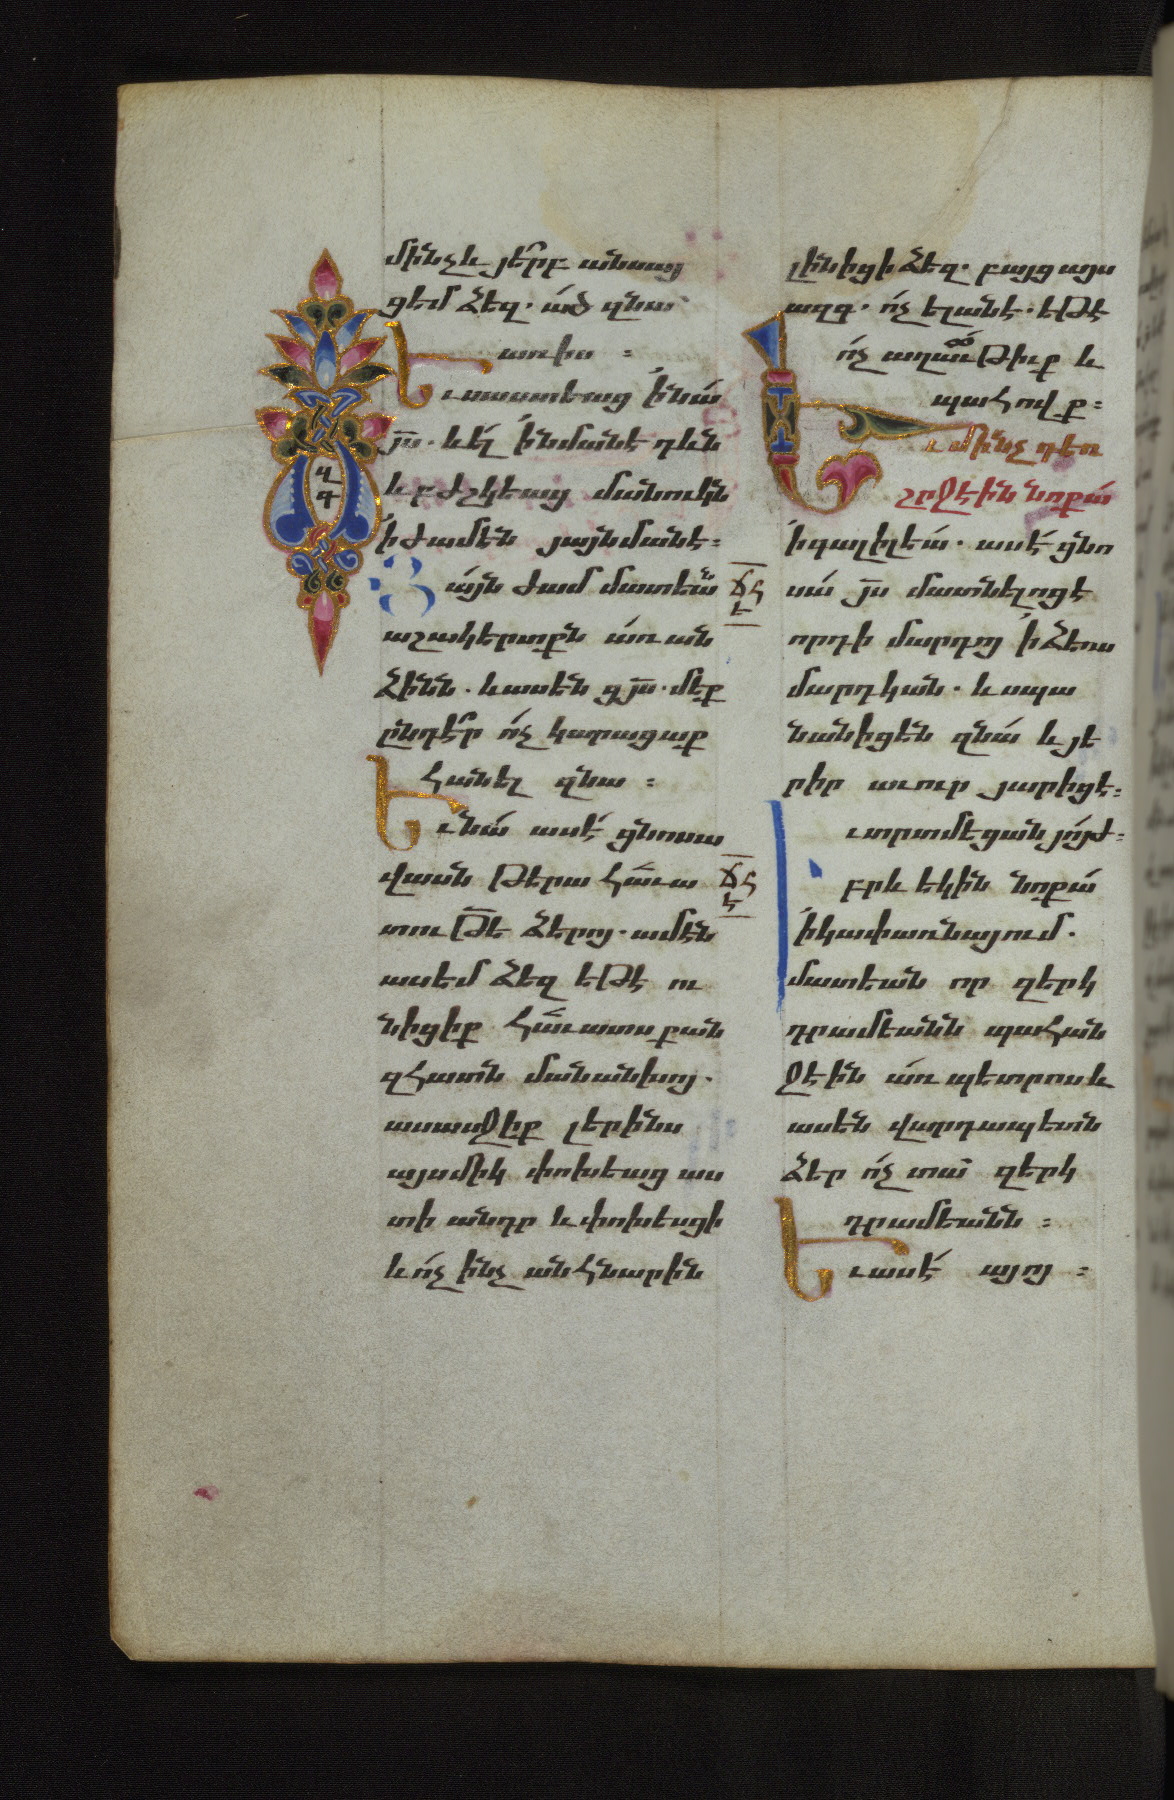 մինչև յե՞րբ անսայ
ցեմ ձեզ. ած զնա
առիս :
Եւ սաստեաց ՛ի նա
յս. և ել ՛ի նմանէ դևն
և բժշկեաց մանուկն
՛ի ժամէն յայնմանէ :
Յայն ժամ մատեան
աշակերտքն առան
ձինն. և ասեն ցյս. մեք
ընդէ՞ր ոչ կարացաք
հանել զնա :
Եւ նա ասէ ցնոսա
վասն թերա հաւա
տութե ձերոյ. ամէն
ասեմ ձեզ եթէ ու
նիցիք հաւատս քան
զհատն մանանխոյ.
ասասջիք լերինս
այսմիկ փոխեաց աս
տի անդր և փոխեսցի
և ոչ ինչ անհնարին
ՂԳ
ՃՀ
Է
ՃՀ
Է
լինիցի ձեզ. բայց այս
ազգ. ոչ ելանէ. եթէ
ոչ աղաւթիւք և
պահովք :
Եւ մինչ դեռ
շրջէին նոքա
՛ի գալիլեա. ասէ ցնո
սա յս մատնելոց է
որդի մարդոյ ՛ի ձեռս
մարդկան. և սպա
նանիցեն զնա և յե
րիր աւուր յարիցէ :
Եւ տրտմեցան յոյժ :
Իբրև եկին նոքա
՛ի կափառնայում.
մատեան որ զերկ
դրամեանն պահան
ջէին առ պետրոս և
ասեն վարդապետն
ձեր ոչ տայ զերկ
դրամեանն :
Եւ ասէ այոյ :